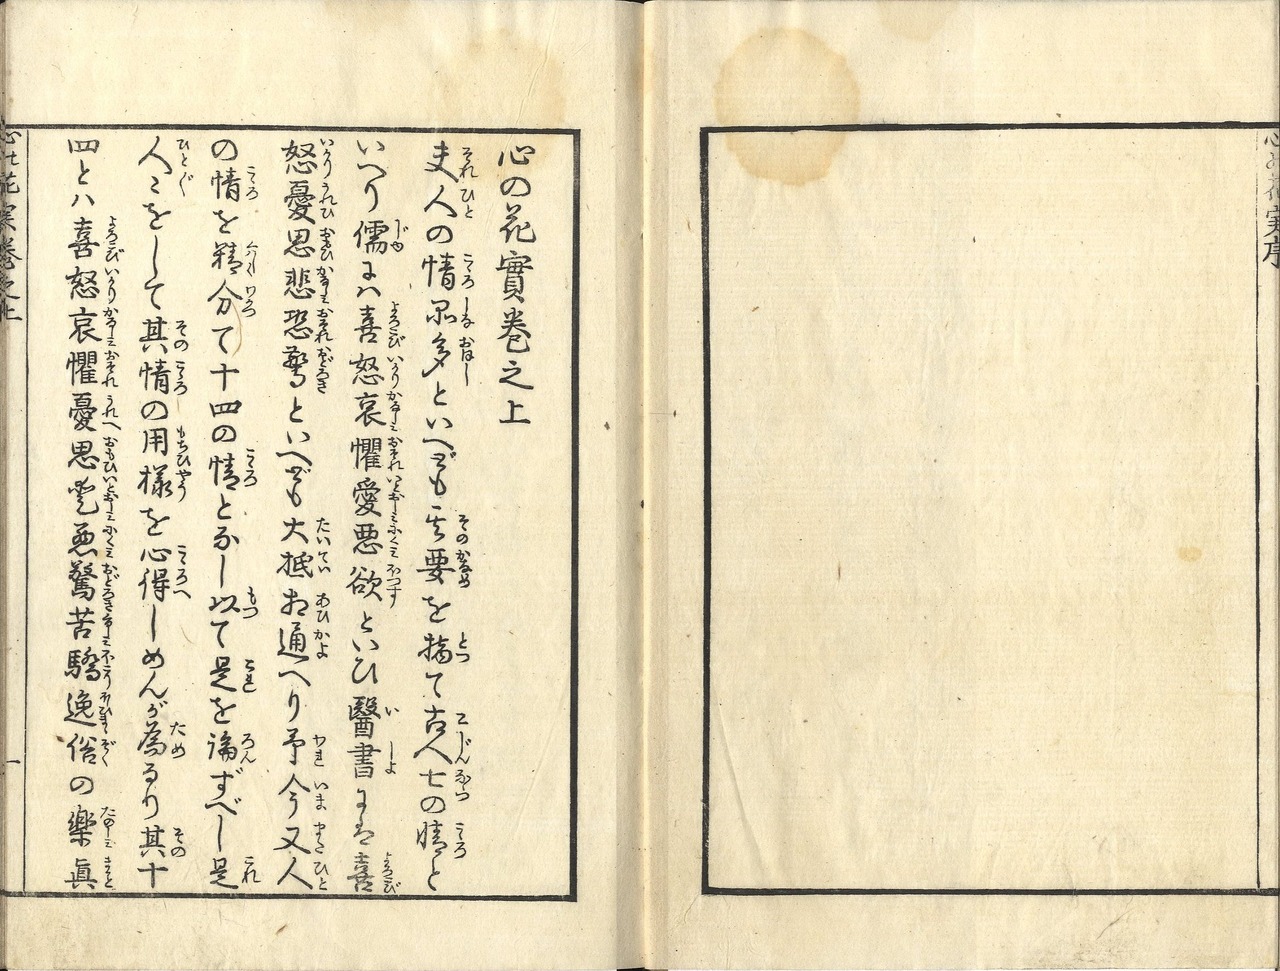 心の花實序
心の花實巻之上
夫人の情品多といへども其要を摘て古人七の情と
いへり儒には喜怒哀懼愛悪欲といひ醫書には喜
怒憂思悲恐驚といへども大抵相通へり予今又人
の情を精分て十四の情となし以て是を論ずべし是
人〻をして其情の用様を心得しめんが為なり其十
四とハ喜怒哀懼憂思愛悪驚苦驕逸俗の樂眞
心の花實巻之上
一